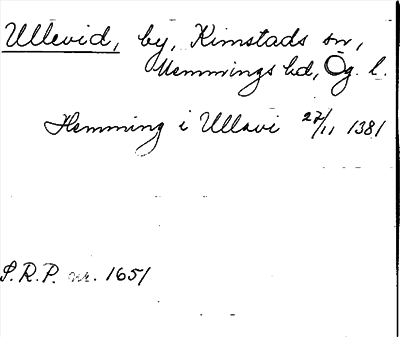 Ullevid, by, Kimstads sn,
Memmings hd, Ög. l.
Hemming i Ullavi 27/11 1381
S.R.P. nr. 1651